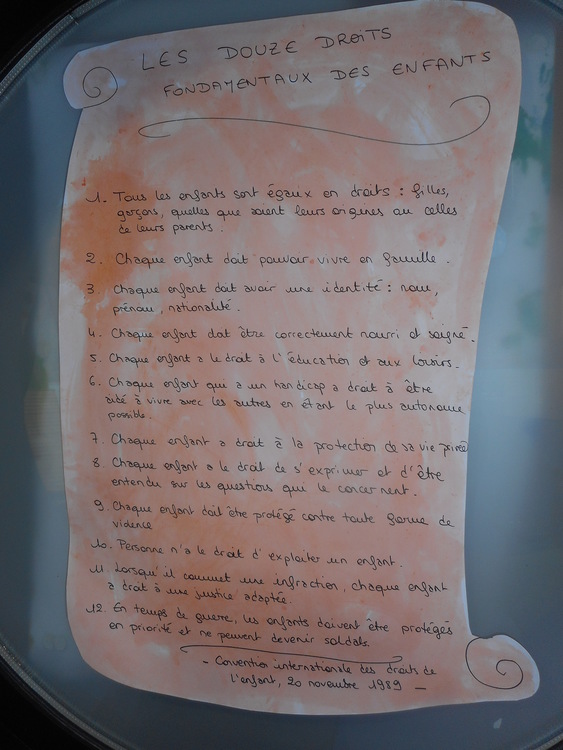 LES DOUZE DROITS
FONDAMENTAUX DES ENFANTS
1. Tous les enfants sont égaux en droits : filles,
garçons, quelles que soient leurs origines ou celles
de leurs parents.
2. Chaque enfant doit pouvoir vivre en famille.
3. Chaque enfant doit avoir une identité : nom,
prénom, nationalité.
4. Chaque enfant doit être correctement nourri et soigné.
5. Chaque enfant a le droit à l'éducation et aux loisirs.
6. Chaque enfant qui a un handicap a droit à être
aidé à vivre avec les autres en étant le plus autonome
possible.
7. Chaque enfant a droit à la protection de sa vie privée
8. Chaque enfant a le droit de s'exprimer et d'être
entendu sur les questions qui le concernent.
9. Chaque enfant doit être protégé contre toute forme de
violence
10. Personne n'a le droit d'exploiter un enfant.
11. Lorsqu'il commet une infraction, chaque enfant
a droit à une justice adaptée.
12. En temps de guerre, les enfants doivent être protégés
en priorité et ne peuvent devenir soldats.
- Convention internationale des droits de
l'enfant, 20 novembre 1989 -